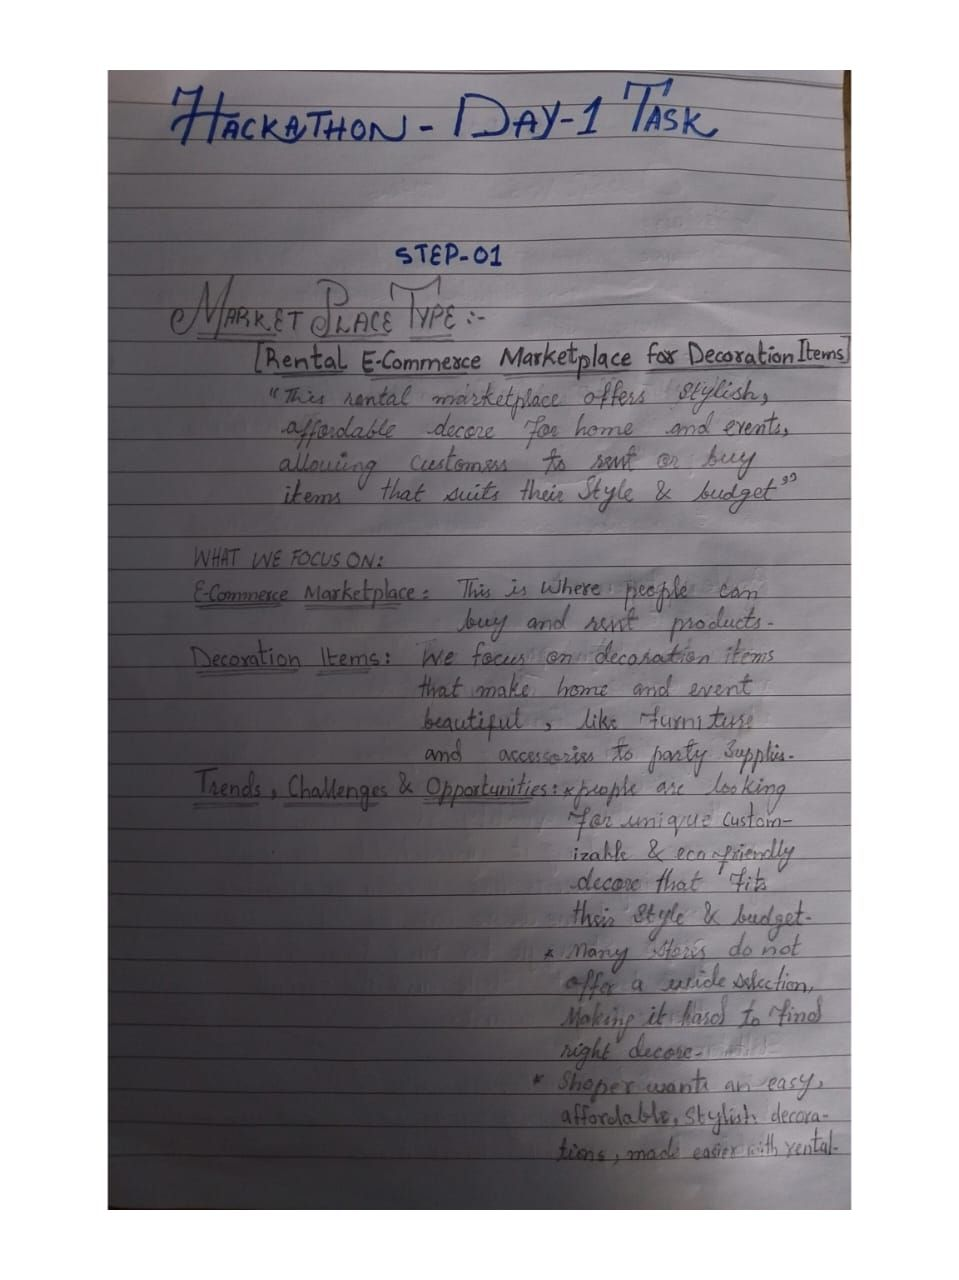 HACKATHON - DAY-1 TASK
STEP-01
MARKET PLACE TYPE :-
[Rental E-Commerce Marketplace for Decoration Items]
"This rental marketplace offers stylish,
affordable decore for home and events,
allowing customers to rent or buy
items that suits their style & budget"
WHAT WE FOCUS ON:
E-Commerce Marketplace: This is where people can
buy and rent products.
Decoration Items: We focus on decoration items
that make home and event
beautiful, like furniture
and accessories to party supplies.
Trends, Challenges & Opportunities: *people are looking
for unique custom-
izable & eco friendly
decore that fits
their style & budget.
* Many stores do not
offer a wide selection,
Making it hard to find
right decore.
* Shoper wants an easy,
affordable, stylish decora-
tions, made easier with rental.